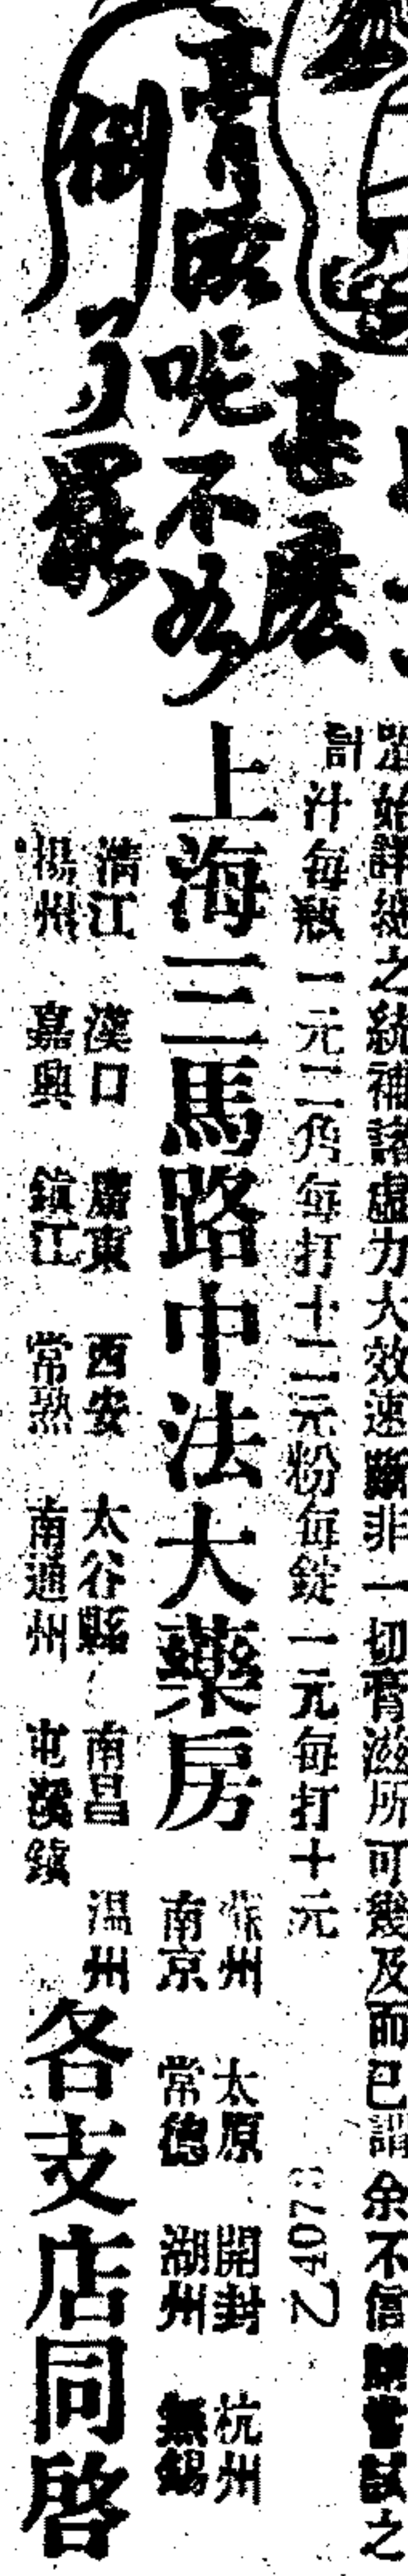 甚麼
膏滋呢不如
倒了罷
始詳總之統補諸虛力大效速斷非一切膏滋所可幾及而已謂余不信請嘗試之
計汁每瓶一元二角每打十二元粉每錠一元每打十元
Z4073
上海三馬路中法大藥房
蘇州 太原 開封 杭州
南京 常德 湖州 無錫
清江 漢口 廣東 西安 太谷縣 南昌 温州
揚州 嘉興 鎮江 常熟 南通州 屯溪鎮
各支店同啓